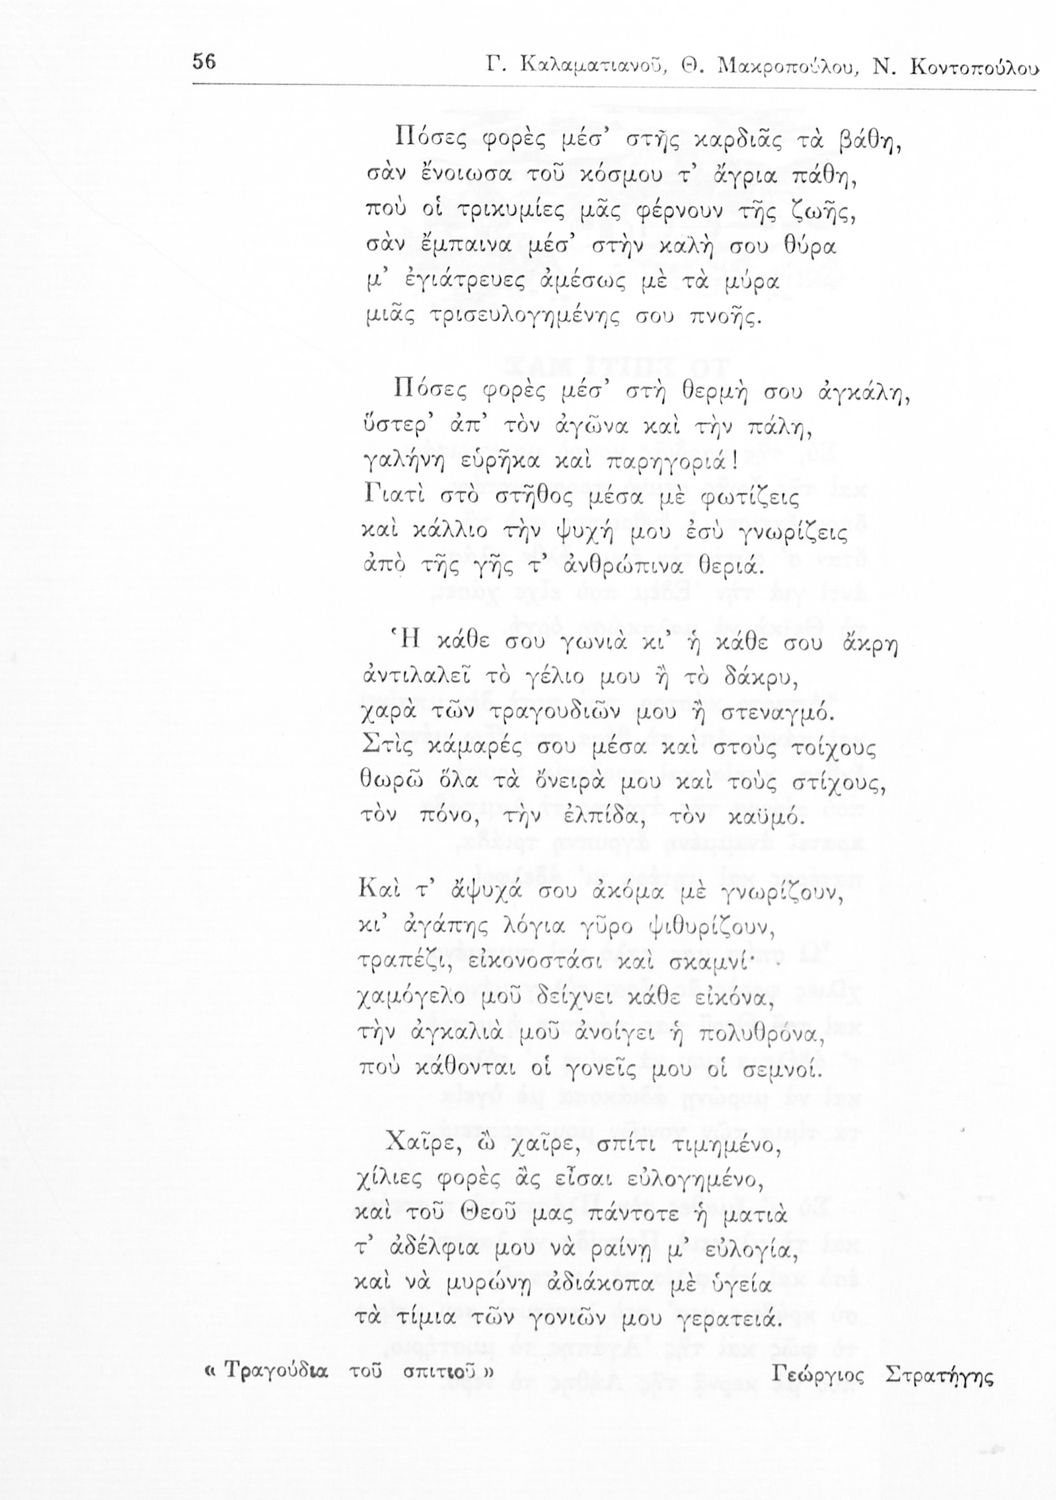 56 Γ. Καλαματιανοῦ, Θ. Μακροπούλου, Ν. Κοντοπούλου
Πόσες φορὲς μέσ’ στῆς καρδιᾶς τὰ βάθη,
σὰν ἔνοιωσα τοῦ κόσμου τ’ ἄγρια πάθη,
ποὺ οἱ τρικυμίες μᾶς φέρνουν τῆς ζωῆς,
σὰν ἔμπαινα μέσ’ στὴν καλὴ σου θύρα
μ’ ἐγιάτρευες ἀμέσως μὲ τὰ μύρα
μιᾶς τρισευλογημένης σου πνοῆς.
Πόσες φορὲς μέσ’ στὴ θερμὴ σου ἀγκάλη,
ὕστερ’ ἀπ’ τὸν ἀγῶνα καὶ τὴν πάλη,
γαλήνη εὑρῆκα καὶ παρηγοριά!
Γιατὶ στὸ στῆθος μέσα μὲ φωτίζεις
καὶ κάλλιο τὴν ψυχή μου ἐσὺ γνωρίζεις
ἀπὸ τῆς γῆς τ’ ἀνθρώπινα θεριά.
Ἡ κάθε σου γωνιὰ κι’ ἡ κάθε σου ἄκρη
ἀντιλαλεῖ τὸ γέλιο μου ἢ τὸ δάκρυ,
χαρὰ τῶν τραγουδιῶν μου ἢ στεναγμό.
Στὶς κάμαρές σου μέσα καὶ στοὺς τοίχους
θωρῶ ὅλα τὰ ὄνειρὰ μου καὶ τοὺς στίχους,
τὸν πόνο, τὴν ἐλπίδα, τὸν καϋμό.
Καὶ τ’ ἄψυχά σου ἀκόμα μὲ γνωρίζουν,
κι’ ἀγάπης λόγια γῦρο ψιθυρίζουν,
τραπέζι, εἰκονοστάσι καὶ σκαμνί·
χαμόγελο μοῦ δείχνει κάθε εἰκόνα,
τὴν ἀγκαλιὰ μοῦ ἀνοίγει ἡ πολυθρόνα,
ποὺ κάθονται οἱ γονεῖς μου οἱ σεμνοί.
Χαῖρε, ὢ χαῖρε, σπίτι τιμημένο,
χίλιες φορὲς ἂς εἶσαι εὐλογημένο,
καὶ τοῦ Θεοῦ μας πάντοτε ἡ ματιὰ
τ’ ἀδέλφια μου νὰ ραίνῃ μ’ εὐλογία,
καὶ νὰ μυρώνῃ ἀδιάκοπα μὲ ὑγεία
τὰ τίμια τῶν γονιῶν μου γερατειά.
« Τραγούδια τοῦ σπιτιοῦ » Γεώργιος Στρατήγης